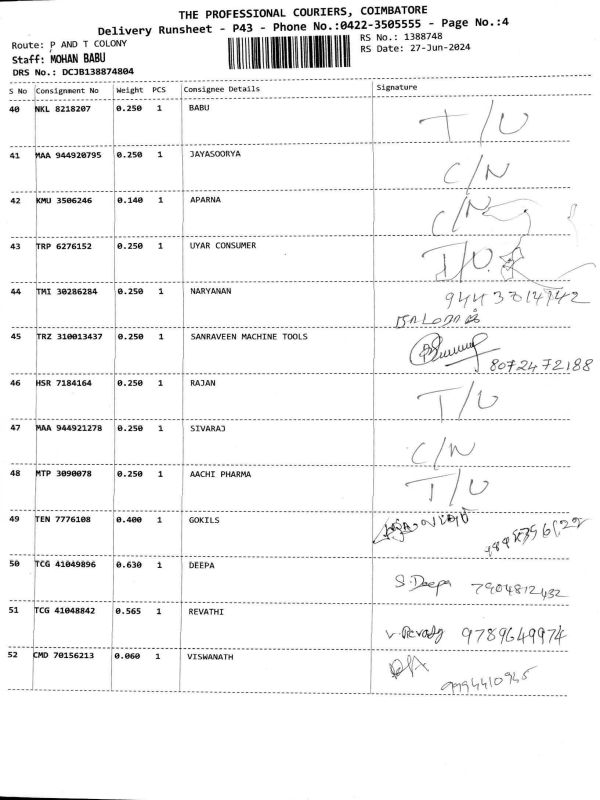 THE PROFESSIONAL COURIERS, COIMBATORE
Delivery Runsheet - P43 - Phone No.:0422-3505555 - Page No.:4
Route: P AND T COLONY
RS No.: 1388748
Staff: MOHAN BABU
RS Date: 27-Jun-2024
DRS No.: DCJB138874804
S No Consignment No Weight PCS Consignee Details Signature
40 NKL 8218207 0.250 1 BABU T/U
41 MAA 944920795 0.250 1 JAYASOORYA C/N
42 KMU 3506246 0.140 1 APARNA C/N
43 TRP 6276152 0.250 1 UYAR CONSUMER I/O.
44 TMI 30286284 0.250 1 NARYANAN 94437014942
45 TRZ 310013437 0.250 1 SANRAVEEN MACHINE TOOLS 8072472188
46 HSR 7184164 0.250 1 RAJAN T/U
47 MAA 944921278 0.250 1 SIVARAJ C/N
48 MTP 3090078 0.250 1 AACHI PHARMA T/U
49 TEN 7776108 0.400 1 GOKILS
50 TCG 41049896 0.630 1 DEEPA S.Deepa 7904812432
51 TCG 41048842 0.565 1 REVATHI V.Revathy 9789649974
52 CMD 70156213 0.060 1 VISWANATH 9994410945